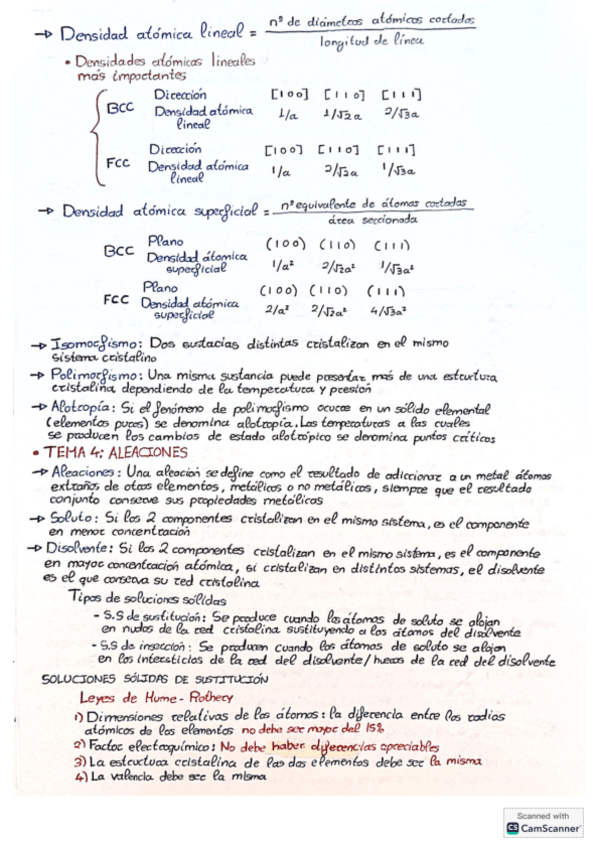 → Densidad atómica lineal = nº de diámetros atómicos cortados / longitud de línea
• Densidades atómicas lineales
más importantes
BCC Dirección [100] [110] [111]
Densidad atómica lineal 1/a 1/√2a 2/√3a
FCC Dirección [100] [110] [111]
Densidad atómica lineal 1/a 2/√2a 1/√3a
→ Densidad atómica superficial = nº equivalente de átomos cortados / área seccionada
BCC Plano (100) (110) (111)
Densidad átomica superficial 1/a² 2/√2a² 1/√3a²
FCC Plano (100) (110) (111)
Densidad atómica superficial 2/a² 2/√2a² 4/√3a²
→ Isomorfismo: Dos sustacias distintas cristalizan en el mismo
sistema cristalino
→ Polimorfismo: Una misma sustancia puede presentar más de una estructura
cristalina dependiendo de la temperatura y presión
→ Alotropía: Si el fenómeno de polimorfismo ocurre en un sólido elemental
(elementos puros) se denomina alotropía. Las temperaturas a las cuales
se producen los cambios de estado alotrópico se denomina puntos críticos
• TEMA 4: ALEACIONES
→ Aleaciones: Una aleación se define como el resultado de adiccionar a un metal átomos
extraños de otros elementos, metálicos o no metálicos, siempre que el resultado
conjunto conserve sus propiedades metálicas
→ Soluto: Si los 2 componentes cristalizan en el mismo sistema, es el componente
en menor concentración
→ Disolvente: Si los 2 componentes cristalizan en el mismo sistema, es el componente
en mayor concentración atómica, si cristalizan en distintos sistemas, el disolvente
es el que conserva su red cristalina
Tipos de soluciones sólidas
- S.S de sustitución: Se produce cuando los átomos de soluto se alojan
en nudos de la red cristalina sustituyendo a los átomos del disolvente
- S.S de inserción: Se producen cuando los átomos de soluto se alojan
en los intersticios de la red del disolvente/huecos de la red del disolvente
SOLUCIONES SÓLIDAS DE SUSTITUCIÓN
Leyes de Hume-Rothery
1) Dimensiones relativas de los átomos: la diferencia entre los radios
atómicos de los elementos no debe ser mayor del 15%
2) Factor electroquímico: No debe haber diferencias apreciables
3) La estructura cristalina de los dos elementos debe ser la misma
4) La valencia debe ser la misma
Scanned with
CS CamScanner